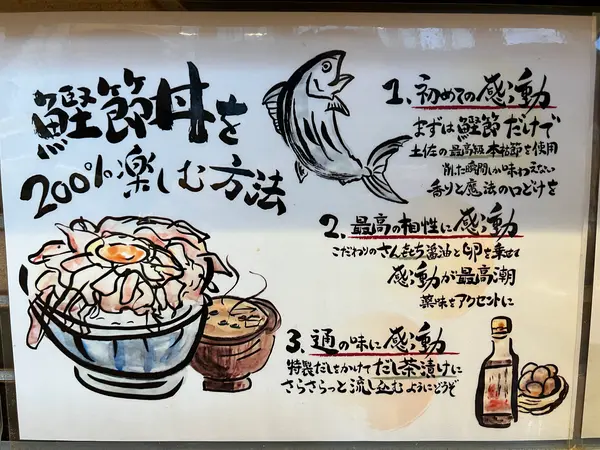 鰹節丼を
200%楽しむ方法
1、初めての感動
まずは鰹節だけで
土佐の最高級本枯節を使用
削した瞬間しか味わえない
香りと魔法の口どけを
2、最高の相性に感動
こだわりのさんきち醤油と卵を乗せて
感動が最高潮
薬味をアクセントに
3、通の味に感動
特製だしをかけてだし茶漬けに
さらさらっと流し込むようにどうぞ